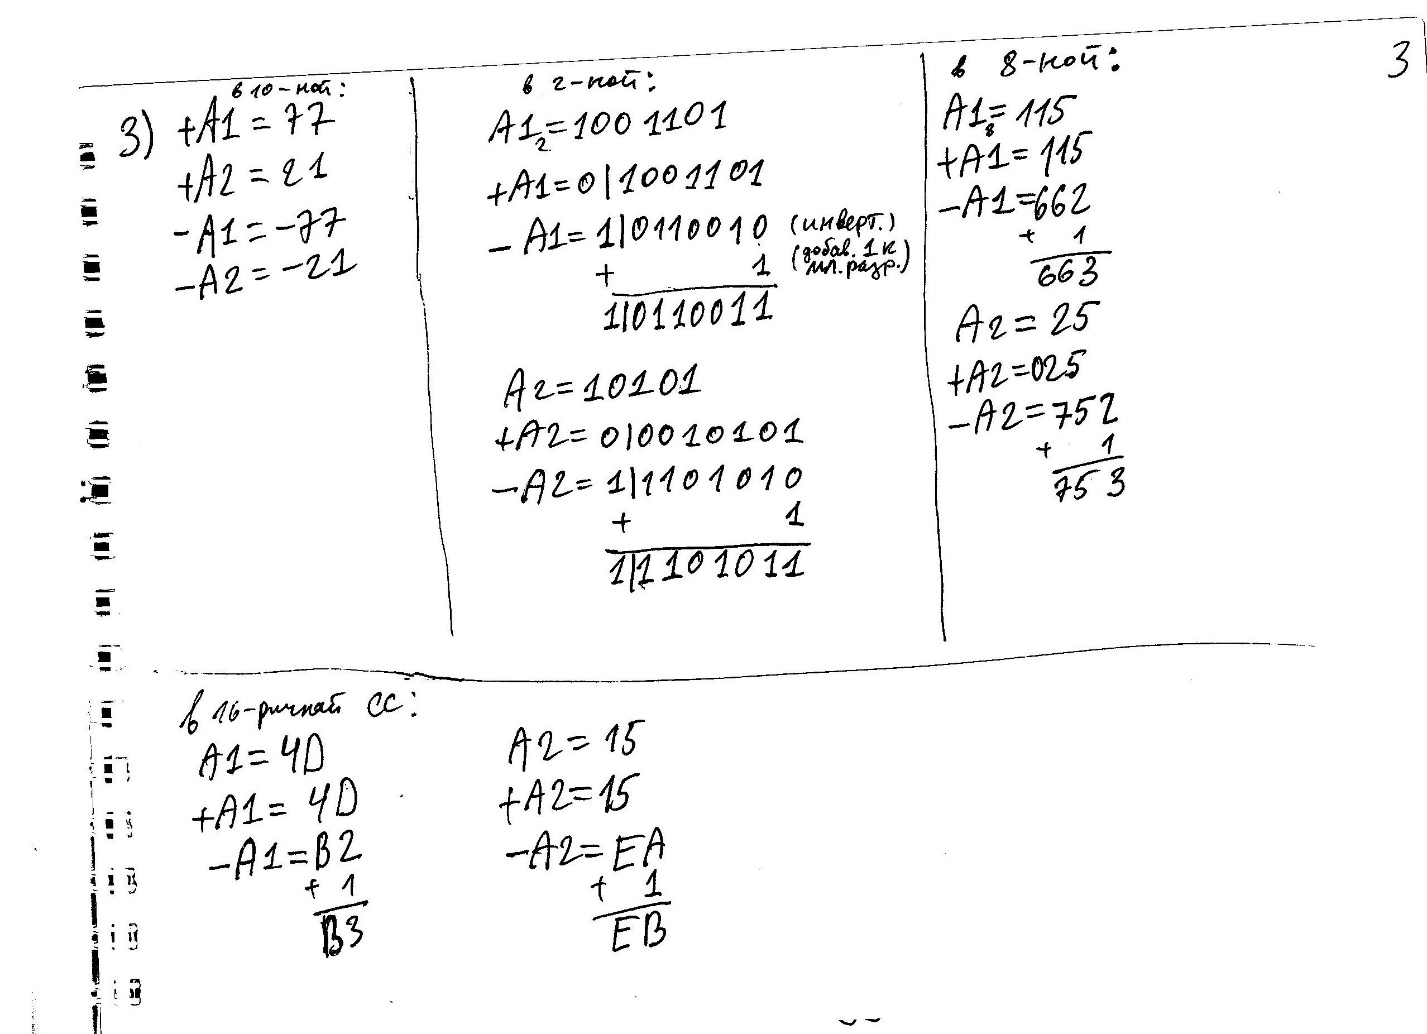 3
3)
в 10-ной:
+A1 = 77
+A2 = 21
-A1 = -77
-A2 = -21
в 2-ной:
A1₂ = 1001101
+A1 = 0|1001101
-A1 = 1|0110010 (инверт.)
+ 1 (добав. 1 к мл. разр.)
1|0110011
A2 = 10101
+A2 = 0|0010101
-A2 = 1|1101010
+ 1
1|1101011
в 8-ной:
A1₈ = 115
+A1 = 115
-A1 = 662
+ 1
663
A2 = 25
+A2 = 025
-A2 = 752
+ 1
753
в 16-ричной СС:
A1 = 4D
+A1 = 4D
-A1 = B2
+ 1
B3
A2 = 15
+A2 = 15
-A2 = EA
+ 1
EB